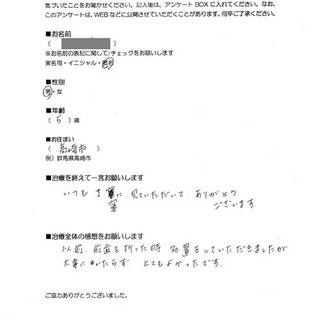 気づいたことをお聞かせください。記入後は、アンケートBOXに入れてください。なお、
このアンケートは、WEBなどに公開させていただくことがあります。何卒ご了承ください。
■お名前
( )
※お名前の表記に関して/チェックをお願いします
実名可・イニシャル・匿名
■性別
男・女
■年齢
( 5 ) 歳
■お住まい
( 高崎市 )
例)群馬県高崎市
■治療を終えて一言お願いします
いつも丁寧に見ていただいて ありがとう
ございます
■治療全体の感想をお願いします
以前 前歯を折った時 処置をしていただきましたが
大事にいたらず とてもよかったです。
ご協力ありがとうございました。